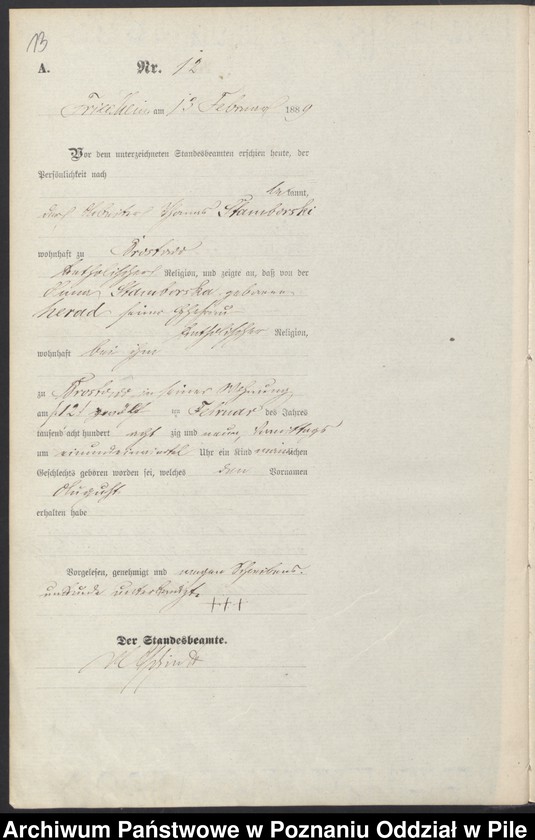 13
A. Nr. 12
am 13 Februar 1889
Vor dem unterzeichneten Standesbeamten erschien heute, der
Persönlichkeit nach
be kannt,
der Arbeiter Stamborski
wohnhaft zu
katholischer Religion, und zeigte an, daß von der
Anna Stamborska geborene
herad seiner Ehefrau
katholischer Religion,
wohnhaft bei ihm
zu in seiner Wohnung
am 12! zwölf ten Februar des Jahres
tausend acht hundert acht zig und neun, Vormittags
um Uhr ein Kind männlichen
Geschlechts geboren worden sei, welches den Vornamen
August
erhalten habe
Vorgelesen, genehmigt und wegen Schreibens-
unkunde unterkreuzt.
+++
Der Standesbeamte.
Archiwum Państwowe w Poznaniu Oddział w Pile